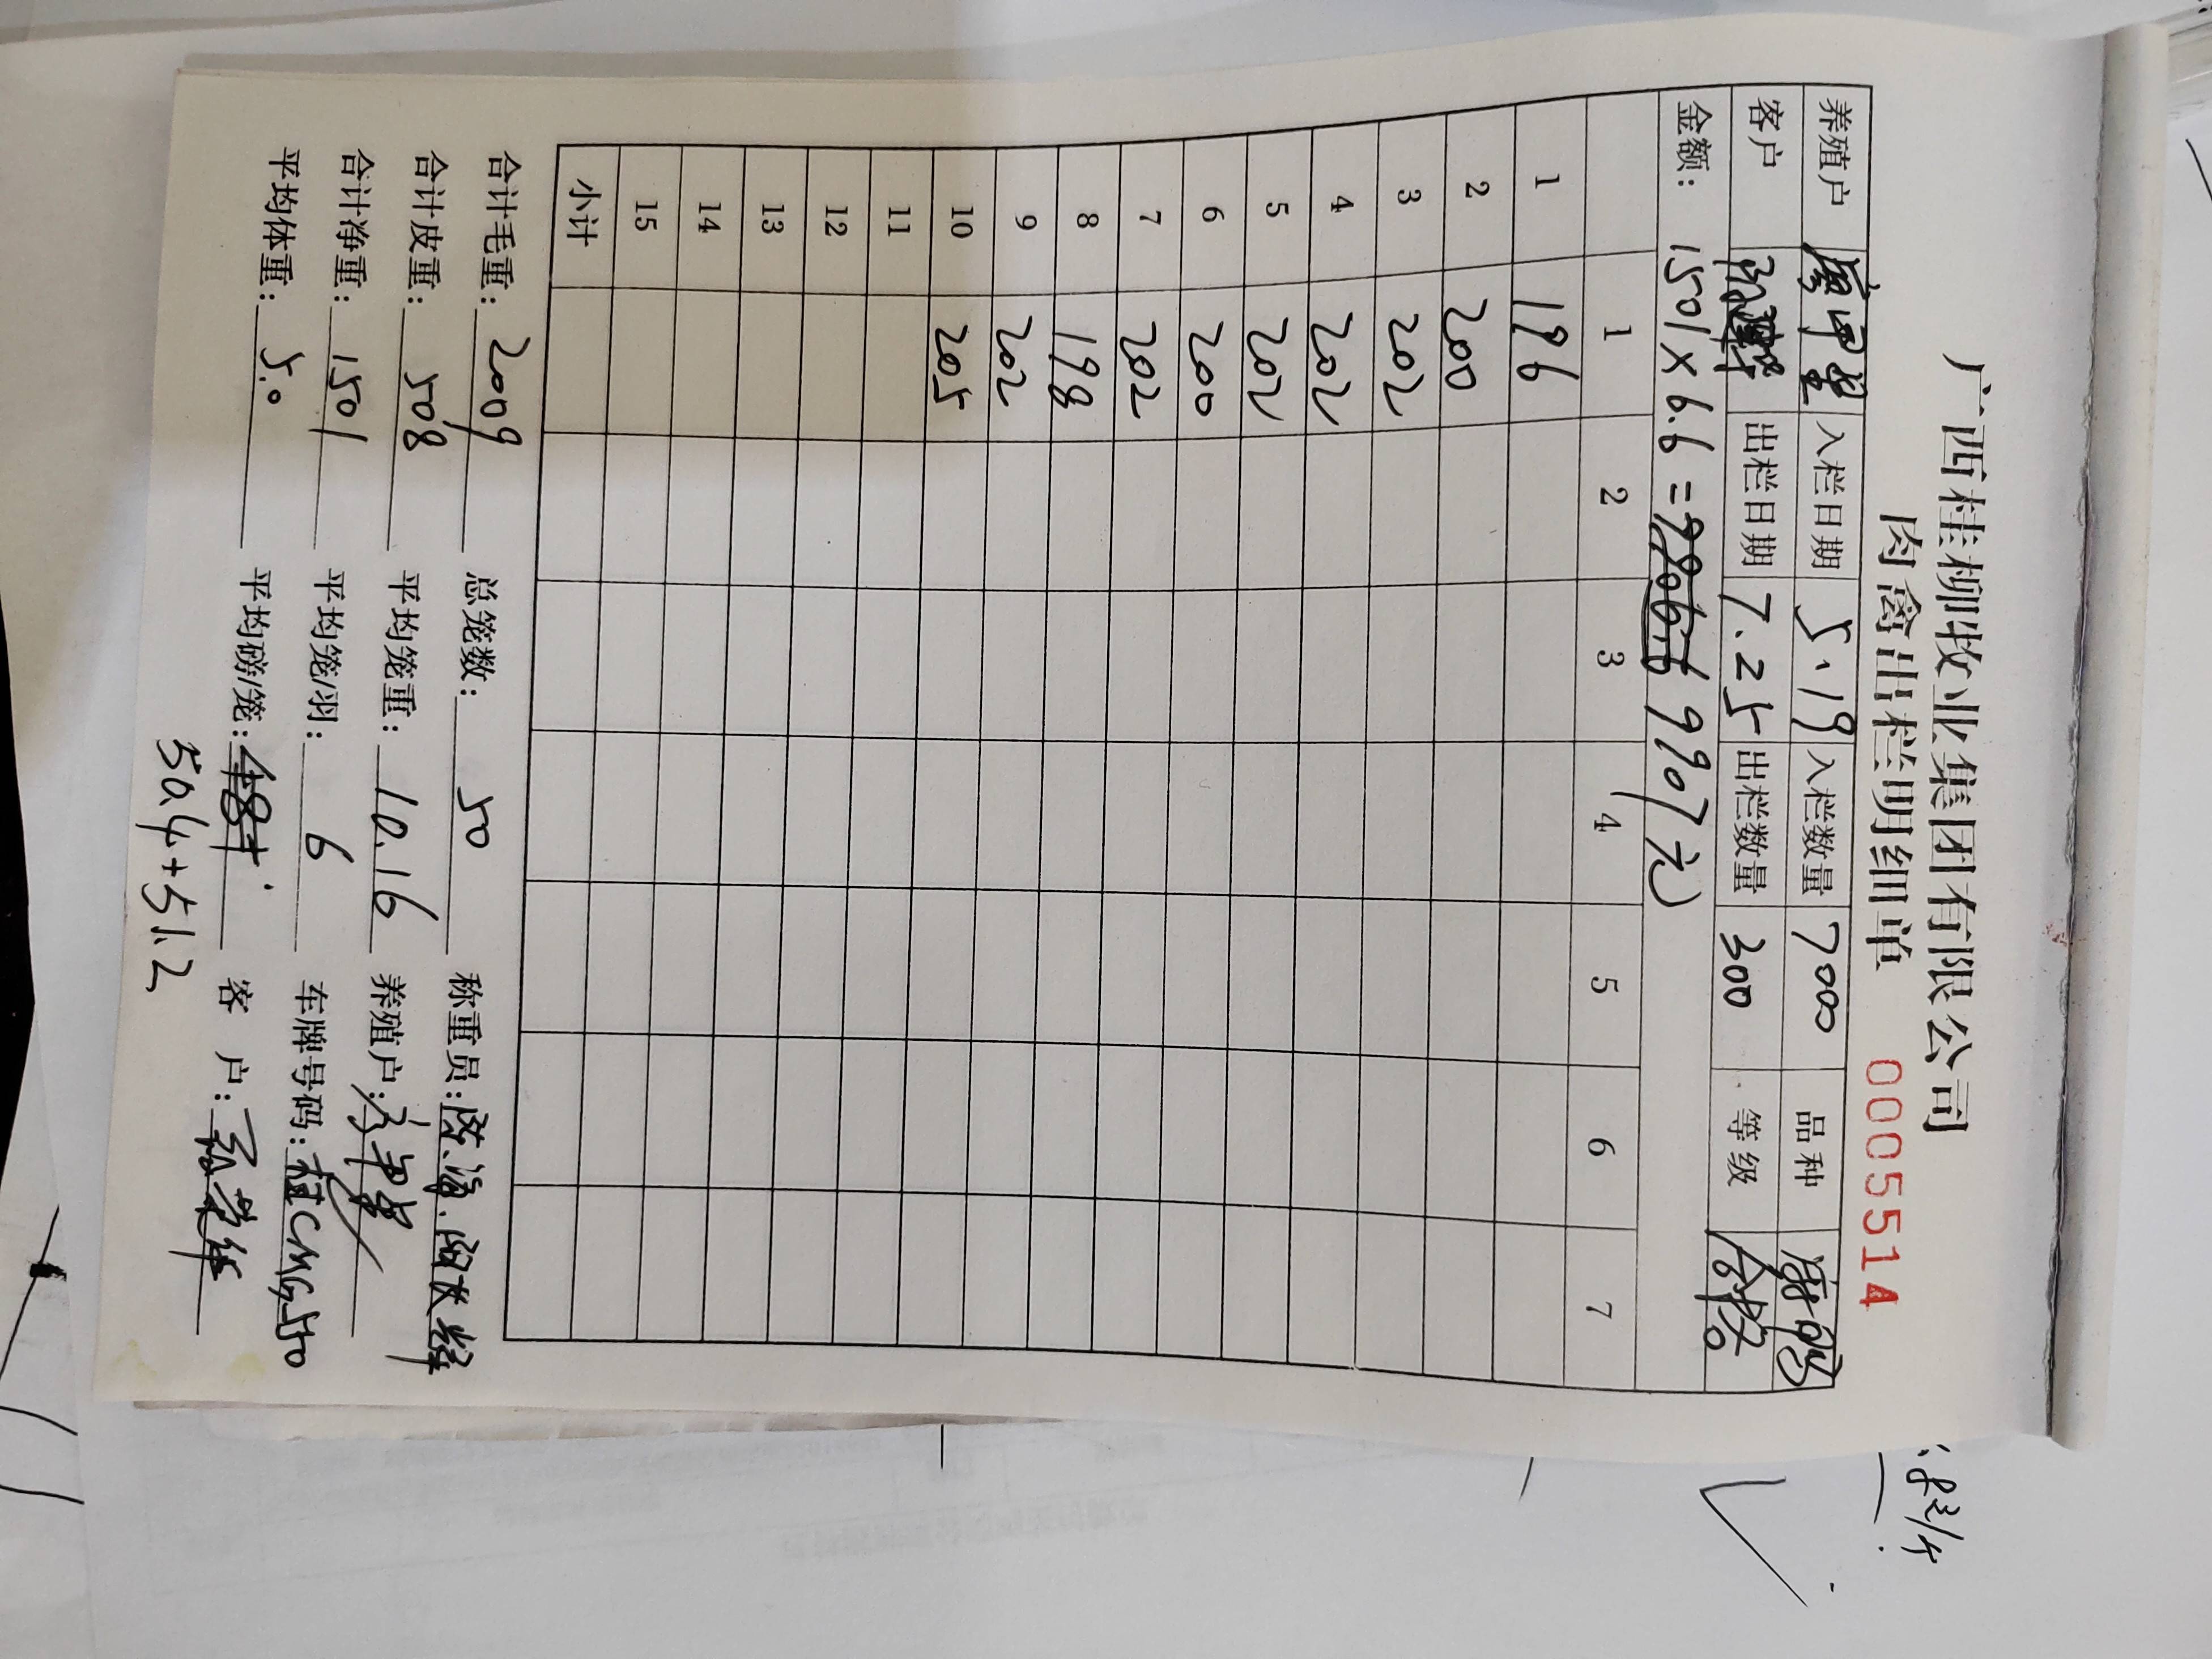 广西桂柳牧业集团有限公司
肉禽出栏明细单 0005514
养殖户 入栏日期 5.19 入栏数量 7000 品种
客户 出栏日期 7.25 出栏数量 300 等级 合格
金额: 1501×6.6= 9907元)
1 2 3 4 5 6 7
1 196
2 200
3 202
4 202
5 202
6 200
7 202
8 198
9 202
10 205
11
12
13
14
15
小计
合计毛重: 2009 总笼数: 50 称重员:
合计皮重: 508 平均笼重: 10.16 养殖户:
合计净重: 1501 平均笼/羽: 6 车牌号码: 桂CMG550
平均体重: 5.0 平均磅/笼: 客 户:
50.4+51.2